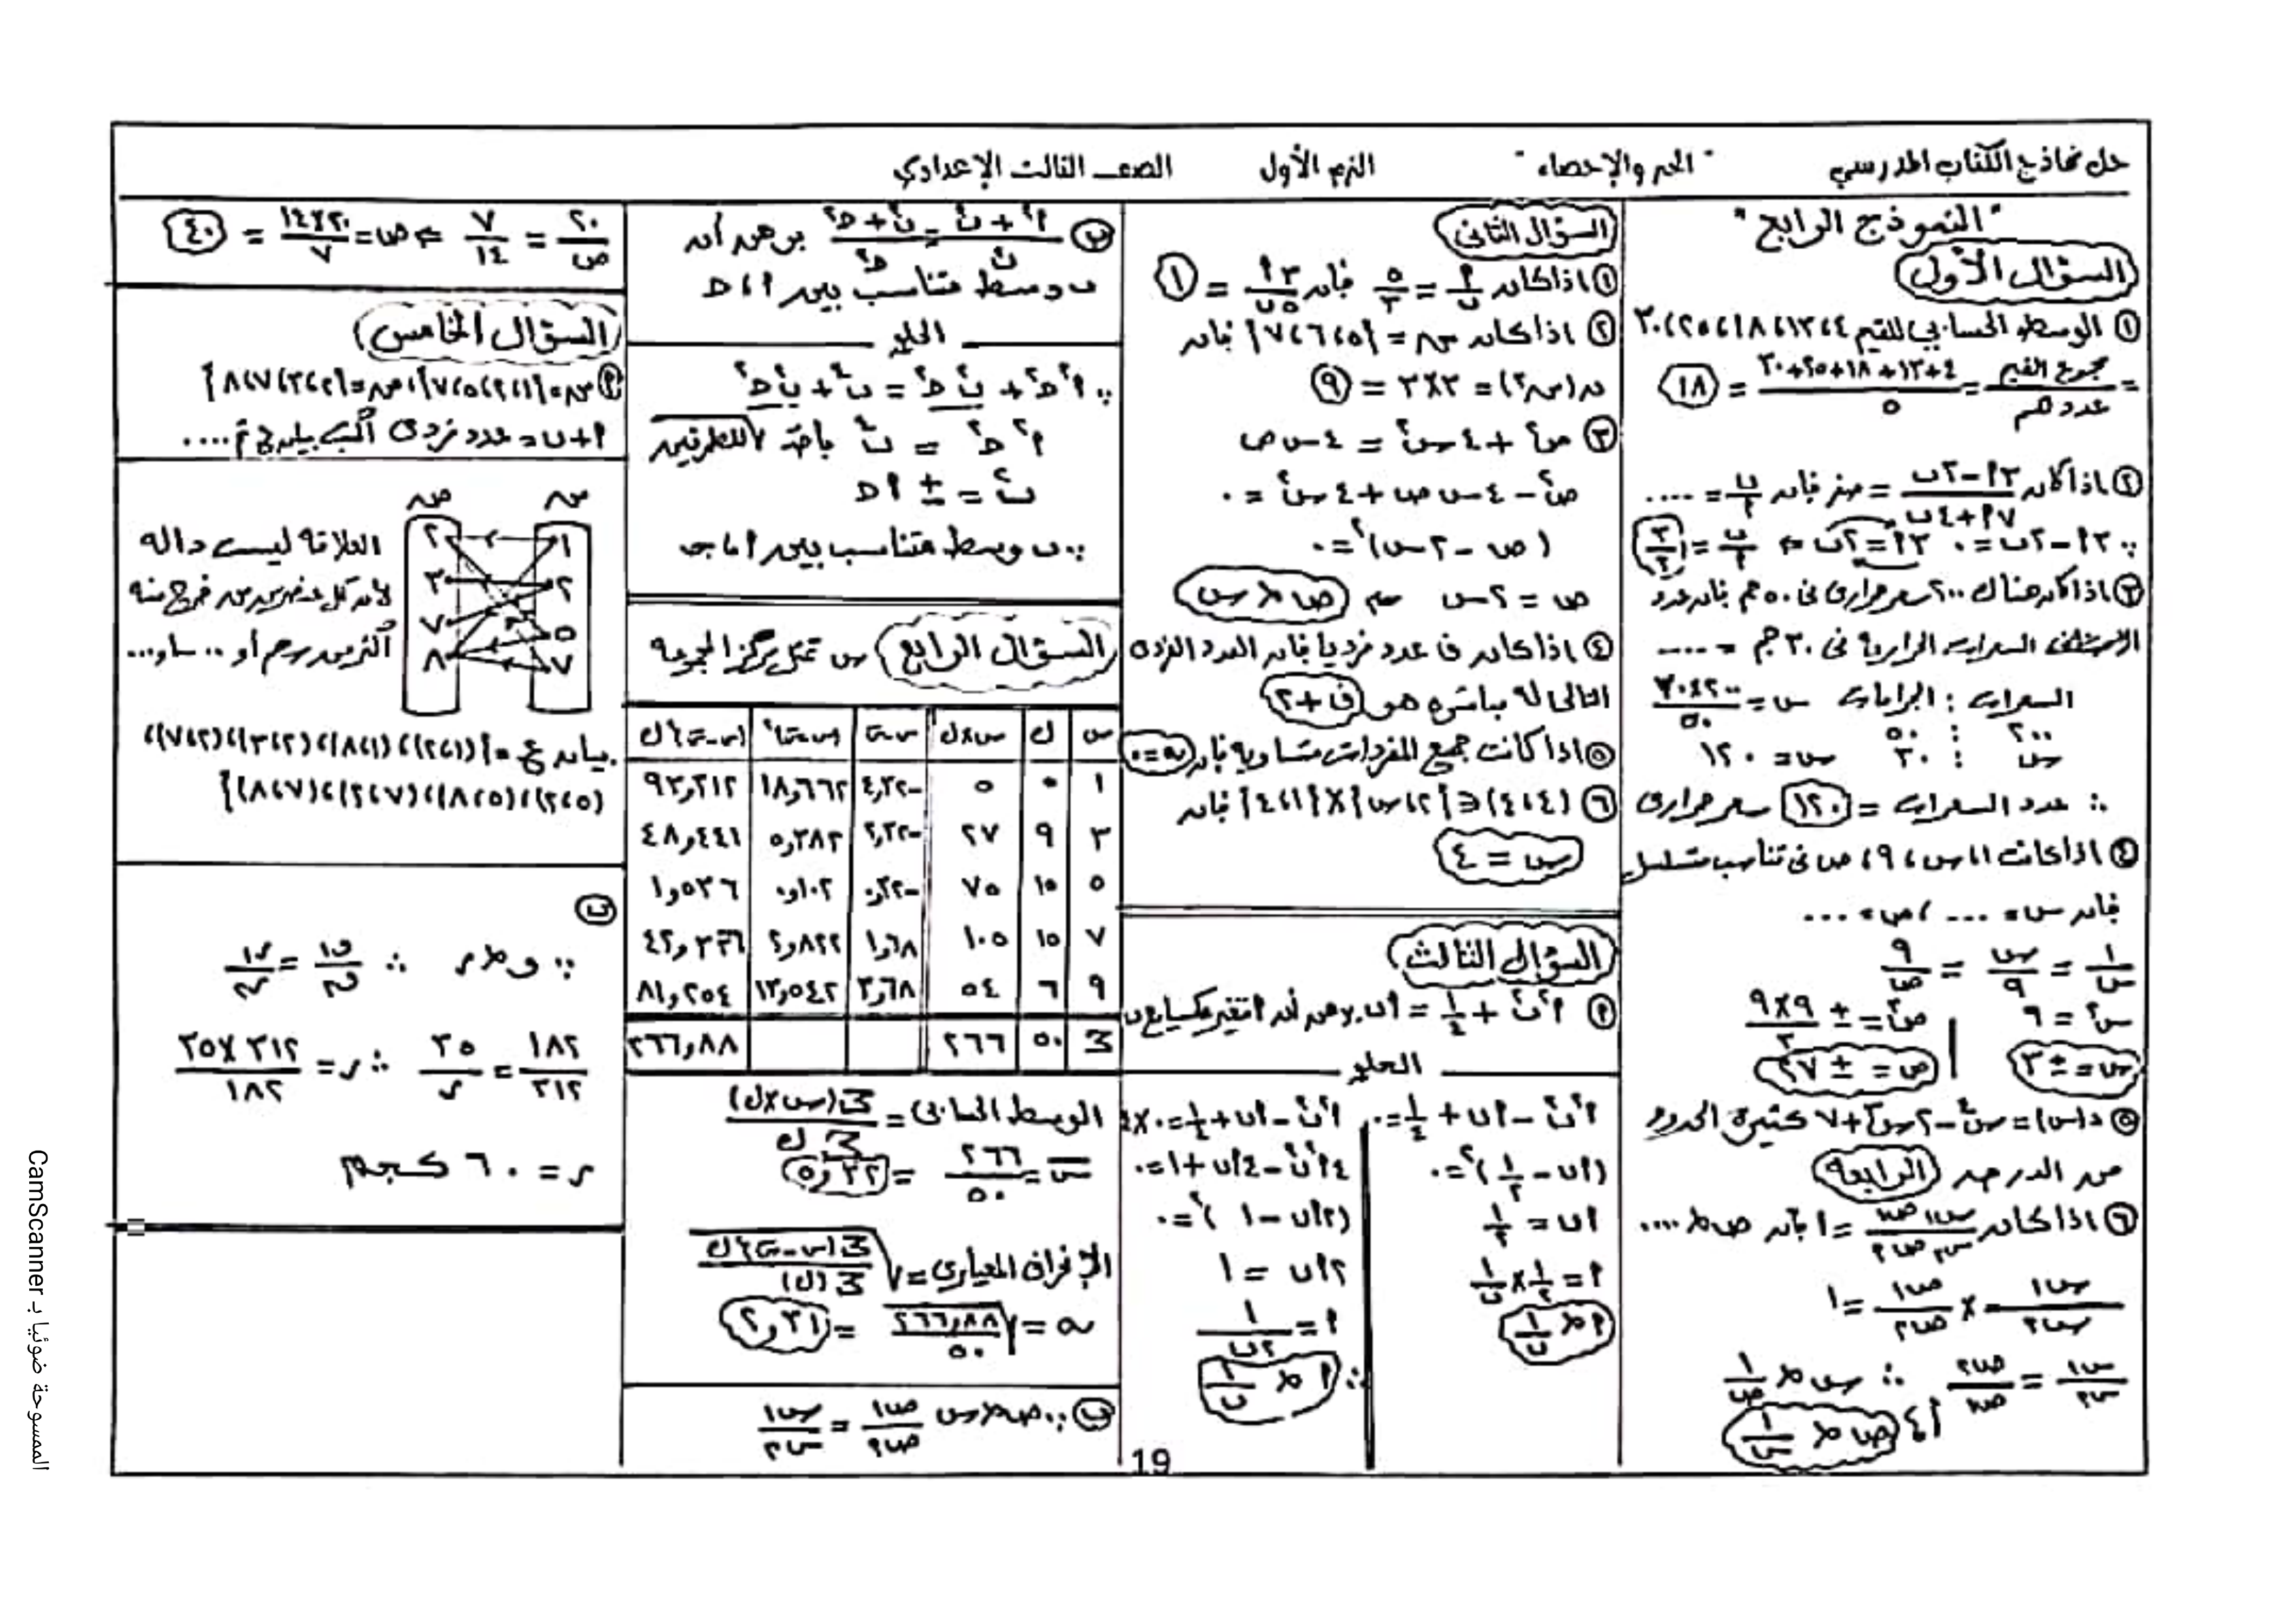 حل نماذج الكتاب المدرسي "الجبر والإحصاء" الترم الأول الصف الثالث الإعدادي
"النموذج الرابع"
السؤال الأول
① الوسط الحسابي للقيم ٤، ١٣، ١٨، ٢٥، ٣٠
= مجموع القيم / عددهم = (٤+١٣+١٨+٢٥+٣٠) / ٥ = ١٨
② اذا كان (٣أ - ٢ب) / (٧أ + ٤ب) = صفر فان ب/أ = ....
∵ ٣أ - ٢ب = ٠ ٣أ = ٢ب ⇐ ب/أ = ٣/٢
③ اذا كان هناك ٢٠٠ سعر حراري في ٥٠ جم فان عدد
السعرات الحرارية في ٣٠ جم = ....
السعرات : الجرامات س = (٢٠٠ × ٣٠) / ٥٠
٢٠٠ : ٥٠
س : ٣٠ س = ١٢٠
∴ عدد السعرات = ١٢٠ سعر حراري
④ اذا كانت ١، س، ٩، ص في تناسب متسلسل
فان س = .... ، ص = ....
١/س = س/٩ = ٩/ص
س² = ٩ ص = ± (٩×٩)/٣
س = ± ٣ ص = ± ٢٧
⑤ د(س) = س⁴ - ٢س³ + ٧ كثيرة الحدود
من الدرجه الرابعة
⑥ اذا كان (س١ ص١) / (س٢ ص٢) = ١ فان ص ∝ ....
س١/س٢ × ص١/ص٢ = ١
س١/س٢ = ص٢/ص١ ∴ س ∝ ١/ص
أي ص ∝ ١/س
السؤال الثاني
① اذا كان أ/ب = ٥/٣ فان ٣أ/٥ب = ١
② اذا كان س = {٥، ٦، ٧} فان
ن(س²) = ٣×٣ = ٩
③ ص² + ٤س² = ٤س ص
ص² - ٤س ص + ٤س² = ٠
(ص - ٢س)² = ٠
ص = ٢س ⇒ ص ∝ س
④ اذا كان ف عدد فرديا فان العدد الفردي
التالي له مباشره هو ف+٢
⑤ اذا كانت جميع المفردات متساويه فان σ = ٠
⑥ (٤، ٤) ∈ {٢، س} × {١، ٤} فان
س = ٤
السؤال الثالث
أ أ²ب² + ١/٤ = أب برهن أن أ تتغير عكسيا مع ب
الحل
أ²ب² - أب + ١/٤ = ٠
(أب - ١/٢)² = ٠
أب = ١/٢
أ = ١/٢ × ١/ب
أ ∝ ١/ب
أ²ب² - أب + ١/٤ = ٠ ×٤
٤أ²ب² - ٤أب + ١ = ٠
(٢أب - ١)² = ٠
٢أب = ١
أ = ١/٢ب
∴ أ ∝ ١/ب
ب (أ² + ب²) / ب² = (ب² + حـ²) / حـ² برهن أن
ب وسط متناسب بين أ، حـ
الحل
∵ أ²حـ² + ب²حـ² = ب⁴ + ب²حـ²
أ²حـ² = ب⁴ باخذ √ للطرفين
ب² = ± أحـ
∴ ب وسط متناسب بين أ، حـ
السؤال الرابع س تمثل مركز المجموعة
س ك س×ك س-س̄ (س-س̄)² (س-س̄)²ك
١ ٥ ٥ -٤,٣٢ ١٨,٦٦٢ ٩٣,٣١٢
٣ ٩ ٢٧ -٢,٣٢ ٥,٣٨٢ ٤٨,٤٤١
٥ ١٥ ٧٥ -٠,٣٢ ٠,١٠٢ ١,٥٣٦
٧ ١٥ ١٠٥ ١,٦٨ ٢,٨٢٢ ٤٢,٣٣٦
٩ ٦ ٥٤ ٣,٦٨ ١٣,٥٤٢ ٨١,٢٥٤
∑ ٥٠ ٢٦٦ ٢٦٦,٨٨
الوسط الحسابي = ∑(س×ك) / ∑ك
س̄ = ٢٦٦/٥٠ = ٥,٣٢
الإنحراف المعياري = √(∑(س-س̄)²ك / ∑(ك))
σ = √(٢٦٦,٨٨/٥٠) = ٢,٣١
ب ∵ ص ∝ س ص١/ص٢ = س١/س٢
٢٠/ص = ٧/١٤ ⇐ ص = (١٤×٢٠)/٧ = ٤٠
السؤال الخامس
أ س = {١، ٢، ٥، ٧} ، ص = {٢، ٣، ٧، ٨}
أ + ب = عدد فردي أكتب بيان ع ثم ....
س ص
١ ٢
٢ ٣
٥ ٧
٧ ٨
العلاقه ليست داله
لأن كل عنصر من س خرج منه
أكثر من سهم أو ..
بيان ع = {(١، ٢)، (١، ٨)، (٢، ٣)، (٢، ٧)،
(٥، ٢)، (٥، ٨)، (٧، ٢)، (٧، ٨)}
ب
∵ و ∝ ر ∴ و١/و٢ = ر١/ر٢
١٨٢/٣١٢ = ٣٥/ر ∴ ر = (٣٥×٣١٢)/١٨٢
ر = ٦٠ كجم
19
الممسوحة ضوئيا بـ CamScanner